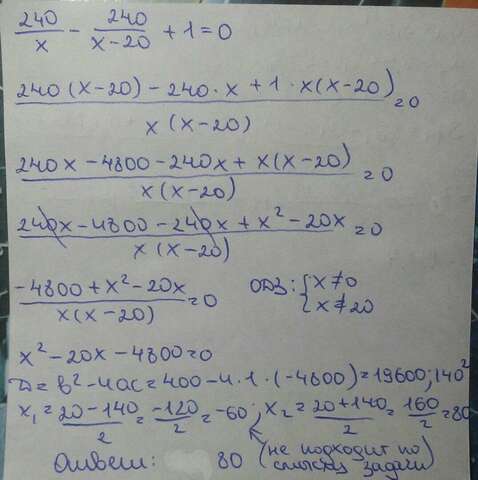 240/x - 240/(x-20) + 1 = 0
(240(x-20) - 240·x + 1·x(x-20))/(x(x-20)) = 0
(240x - 4800 - 240x + x(x-20))/(x(x-20)) = 0
(240x - 4800 - 240x + x² - 20x)/(x(x-20)) = 0
(-4800 + x² - 20x)/(x(x-20)) = 0 ОДЗ: { x ≠ 0 x ≠ 20
x² - 20x - 4800 = 0
D = b² - 4ac = 400 - 4·1·(-4800) = 19600; 140²
x₁ = (20-140)/2 = -120/2 = -60; x₂ = (20+140)/2 = 160/2 = 80
Ответ: 80 (не подходит по смыслу задачи)